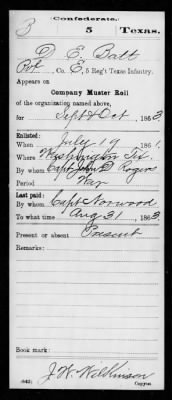 Confederate.
3
5 Texas.
D E Batt
Pvt, Co. E, 5 Reg't Texas Infantry.
Appears on
Company Muster Roll
of the organization named above,
for Sept & Oct, 1863.
Enlisted:
When July 19, 1861.
Where Washington Tex
By whom Capt John D Rogers
Period War
Last paid:
By whom Capt Norwood
To what time Aug 31, 1863.
Present or absent Present
Remarks:
Book mark:
J. W. Wilkinson
(642) Copyist.